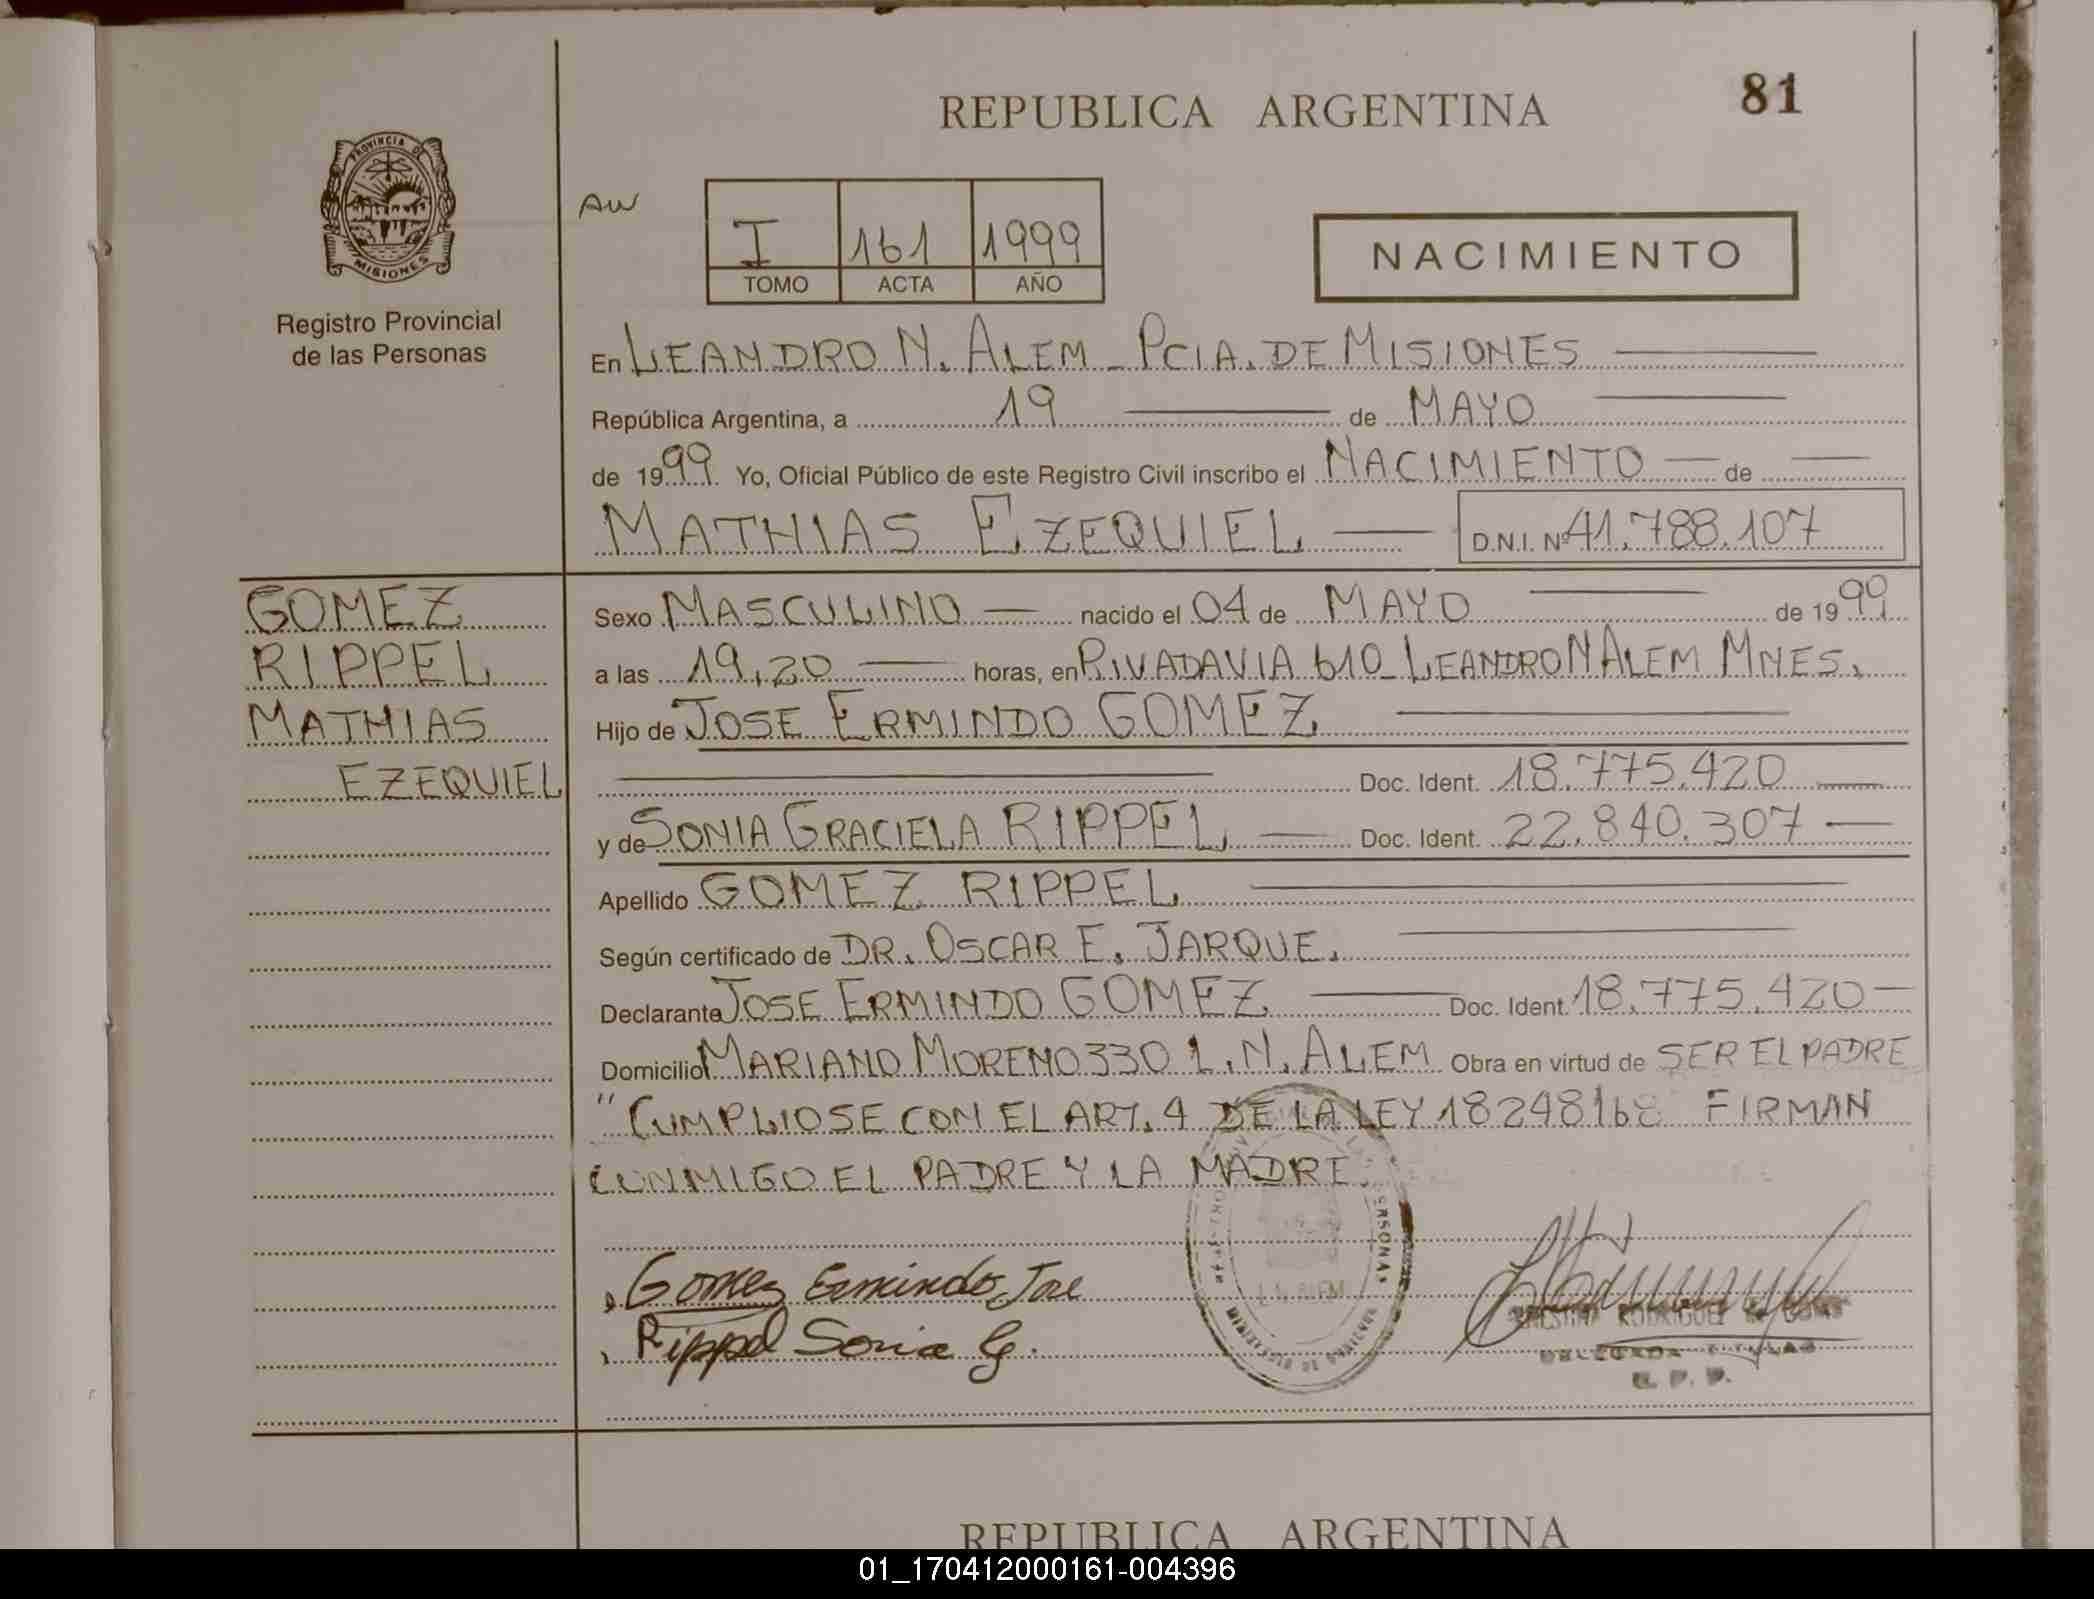 REPUBLICA ARGENTINA
81
PROVINCIA DE
MISIONES
Registro Provincial
de las Personas
AW
I 161 1999
TOMO ACTA AÑO
NACIMIENTO
En LEANDRO N. ALEM - PCIA. DE MISIONES
República Argentina, a 19 de MAYO
de 1999 Yo, Oficial Público de este Registro Civil inscribo el NACIMIENTO de
MATHIAS EZEQUIEL D.N.I. Nº 41.788.107
GOMEZ
RIPPEL
MATHIAS
EZEQUIEL
Sexo MASCULINO nacido el 04 de MAYO de 1999
a las 19,20 horas, en RIVADAVIA 610 - LEANDRO N ALEM MNES.
Hijo de JOSE ERMINDO GOMEZ
Doc. Ident. 18.775.420
y de SONIA GRACIELA RIPPEL Doc. Ident. 22.840.307
Apellido GOMEZ RIPPEL
Según certificado de DR. OSCAR E. JARQUE.
Declarante JOSE ERMINDO GOMEZ Doc. Ident. 18.775.420
Domicilio MARIANO MORENO 330 L.N. ALEM Obra en virtud de SER EL PADRE
" CUMPLIOSE CON EL ART. 4 DE LA LEY FIRMAN
CONMIGO EL PADRE Y LA MADRE.
Gomez Ermindo Jose
Rippel Sonia G.
PERSONAS
L.N. ALEM
RODRIGUEZ
DELEGADA TITULAR
R. P. P.
REPUBLICA ARGENTINA
01_170412000161-004396